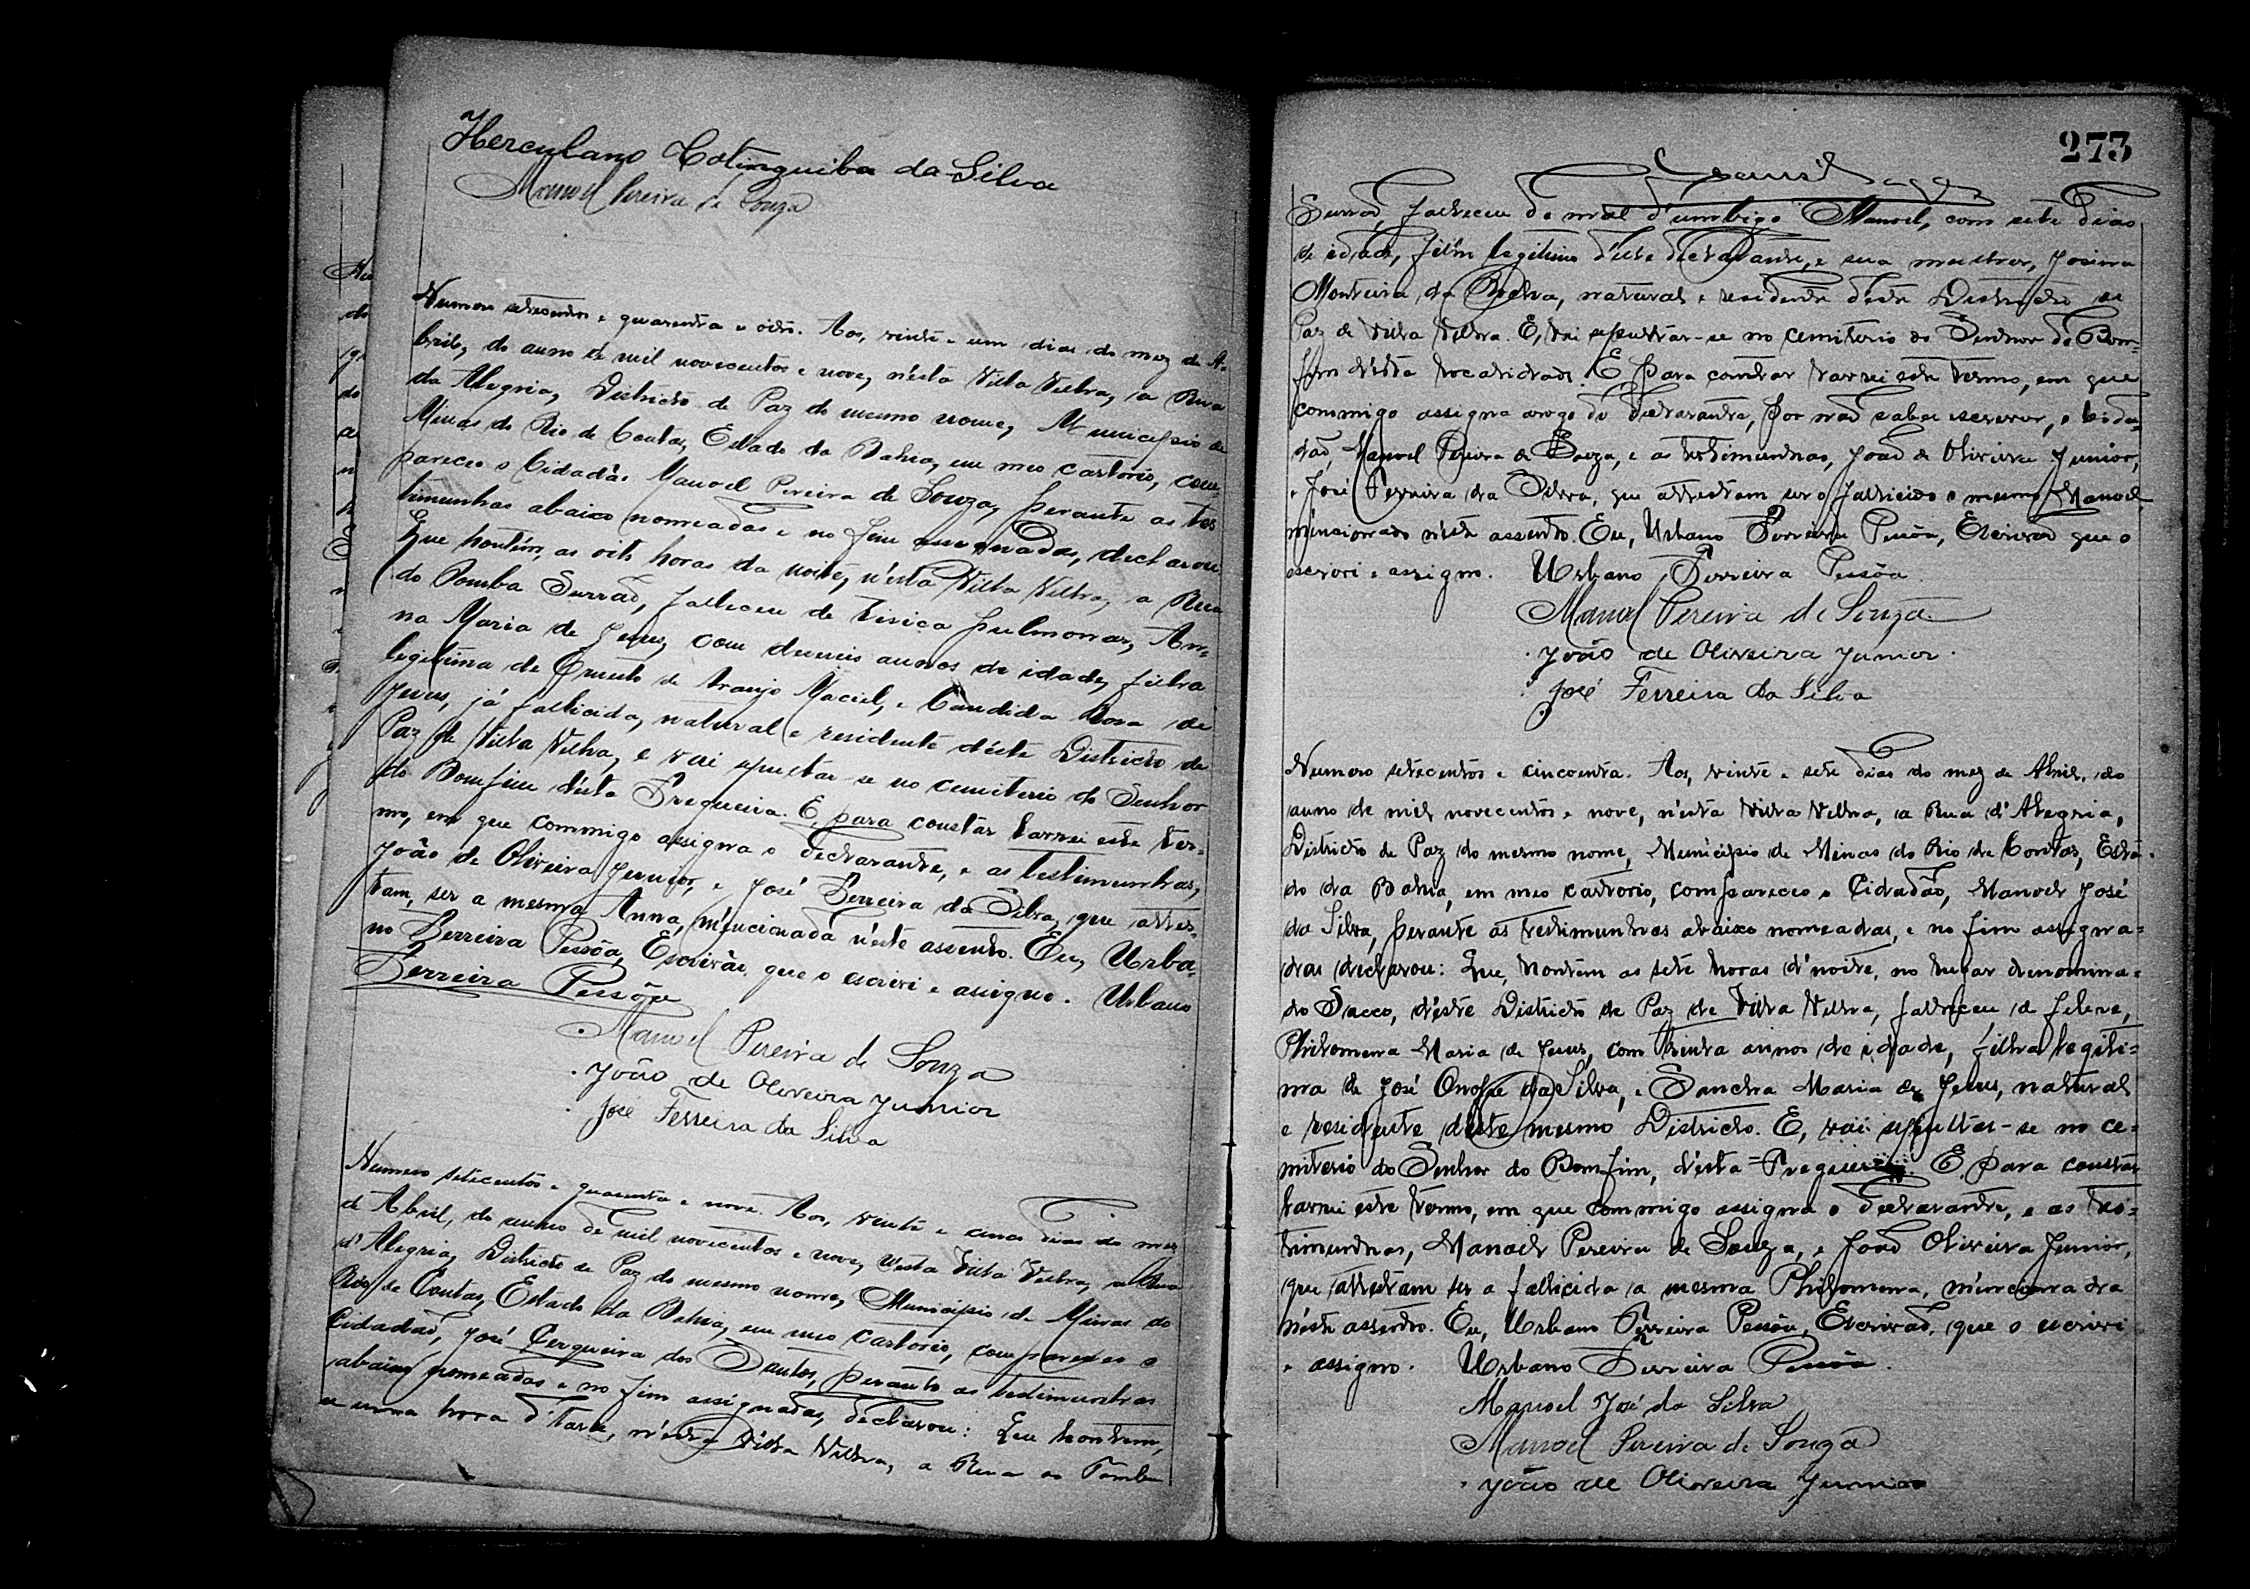 Herculano Cotinguiba da Silva
Manoel Pereira de Souza
Numero setecentos e quarenta e oito. Aos, vinte e um dias do mez de A-
bril, do anno de mil novecentos e nove, n'esta Villa Velha, a Rua
da Alegria, Districto de Paz do mesmo nome, Municipio de
Minas do Rio de Contas, Estado da Bahia, em meo cartorio, com-
pareceo o Cidadão Manoel Pereira de Souza, perante as tes-
timunhas abaixo nomeadas e no fim assignadas, declarou
Que hontem, as oito horas da noite, n'esta Villa Velha, a Rua
do Pomba Surrão, falleceu de tisica pulmonar, An-
na Maria de Jesus, com deseseis annos de idade, filha
legitima de de Araujo Maciel, e Candida Rosa de
Jesus, já fallicida, natural e residente d'éste Districto de
Paz de Villa Velha, e vai sepultar-se no cemiterio do Senhor
do Bomfim d'ésta Fregueira. E, para constar lavrei este ter-
mo, em que commigo assigna o declarante, e as testimunhas,
João de Oliveira Junior, e José Ferreira da Silva, que attes-
tam, ser a mesma Anna, méncionada n'éste assento. Eu, Urba-
no Ferreira Pessôa, Escrivão, que o escrivi e assigno. Urbano
Ferreira Pessôa
Manoel Pereira de Souza
João de Oliveira Junior
José Ferreira da Silva
Numero seticentos e quarenta e nove. Aos, vinte e cinco dias do mez
de Abril, do anno de mil novecentos e nove, n'esta Villa Velha, a Rua
d'Alegria, Districto de Paz do mesmo nome, Municipio de Minas do
Rio de Contas, Estado da Bahia, em meo cartorio, compareceo o
Cidadão, José Cerqueira dos Santos, perante as testimunhas
abaixo nomeadas e no fim assignadas, declarou: Que hontem,
a uma hora d'tarde, n'ésta Villa Velha, a Rua do Pomba
273
Surrão, falleceu do mal d'umbigo Manoel, com sete dias
de idade, filho legitimo d'éste declarante, e sua mulher,
Monteiro da natural e residente d'éste Districto de
Paz de Villa Velha. E, vai sepultar-se no cemiterio do Senhor do Bom-
fim d'ésta localidade. E para constar lavrei este termo, em que
commigo assigna arogo do declarante, por não saber escrever, o cida-
dão, Manoel Pereira de Souza, e as testimunhas, João de Oliveira Junior,
e José Ferreira da Silva, que attestam ser o fallicido o mesmo Manoel
méncionado n'éste assento. Eu, Urbano Ferreira Pessôa, Escrivão que o
escrivi e assigno. Urbano Ferreira Pessôa
Manoel Pereira de Souza
João de Oliveira Junior.
José Ferreira da Silva
Numero setecentos e cincoenta. Aos, vinte e sete dias do mez de Abril, do
anno de mil novecentos e nove, n'ésta Villa Velha, a Rua d'Alegria,
Districto de Paz do mesmo nome, Municipio de Minas do Rio de Contas, Esta-
do da Bahia, em meo cartorio, compareceo o Cidadão, Manoel José
da Silva, perante as testimunhas abaixo nomeadas, e no fim assigna-
das declarou: Que, hontem as sete horas d'noite, no lugar denomina-
do Sacco, d'éste Districto de Paz de Villa Velha, falleceu de febre,
Philomena Maria de Jesus, com trinta annos de idade, filha legiti-
ma de José Onofre da Silva, e Sancha Maria de Jesus, natural
e residente déste mesmo Districto. E, vai sepultar-se no ce-
miterio do Senhor do Bomfim, d'ésta Fregueira. E para constar
lavrei este termo, em que commigo assigna o declarante, e as tes-
timunhas, Manoel Pereira de Souza, e João Oliveira Junior,
que attestam ser a fallicida a mesma Philomena, méncionada
n'éste assento. Eu, Urbano Ferreira Pessôa, Escrivão, que o escrivi
e assigno. Urbano Ferreira Pessôa.
Manoel José da Silva
Manoel Pereira de Souza
João de Oliveira Junior